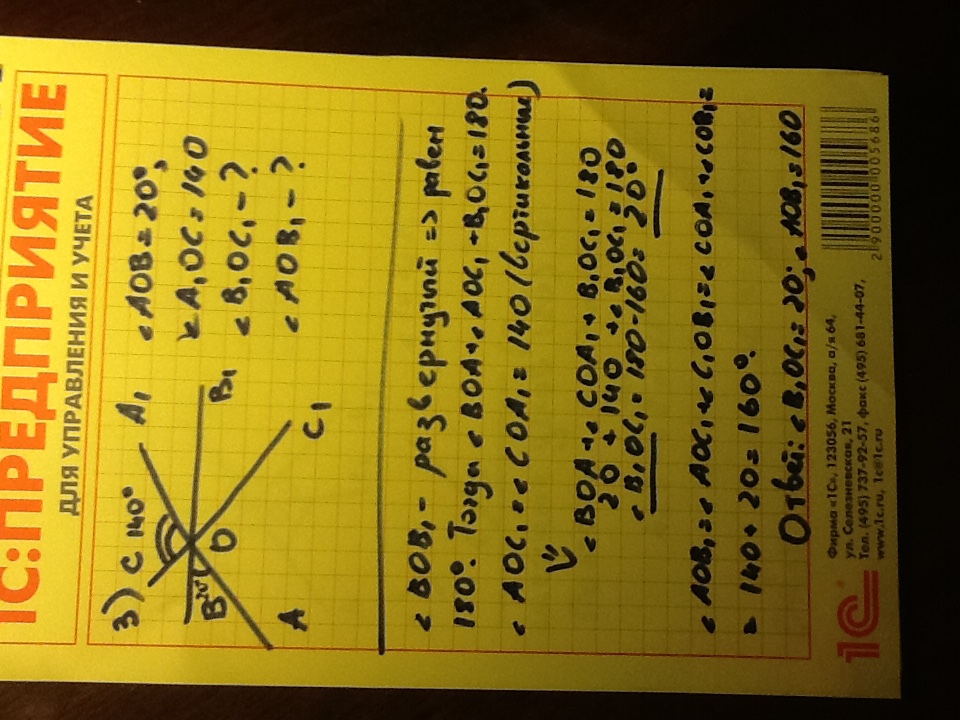 1С:ПРЕДПРИЯТИЕ
ДЛЯ УПРАВЛЕНИЯ И УЧЕТА
3) C 140° A₁
B 20° O B₁
A C₁
< AOB = 20°,
< A₁OC = 140
< B₁OC₁ - ?
< AOB₁ - ?
< BOB₁ - развернутый => равен
180°. Тогда < BOA + < AOC₁ + B₁OC₁ = 180.
< AOC₁ = < COA₁ = 140 (вертикальные)
< BOA + < COA₁ + B₁OC₁ = 180
20 + 140 + < B₁OC₁ = 180
< B₁OC₁ = 180 - 160 = 20°
< AOB₁ = < AOC₁ + < C₁OB₁ = < COA₁ + < COB₁ =
= 140 + 20 = 160°.
Ответ: < B₁OC₁ = 20; < AOB₁ = 160
1С
Фирма «1С», 123056, Москва, а/я 64,
ул. Селезневская, 21
Тел. (495) 737-92-57, факс (495) 681-44-07,
www.1c.ru, 1c@1c.ru
2 900000 005686